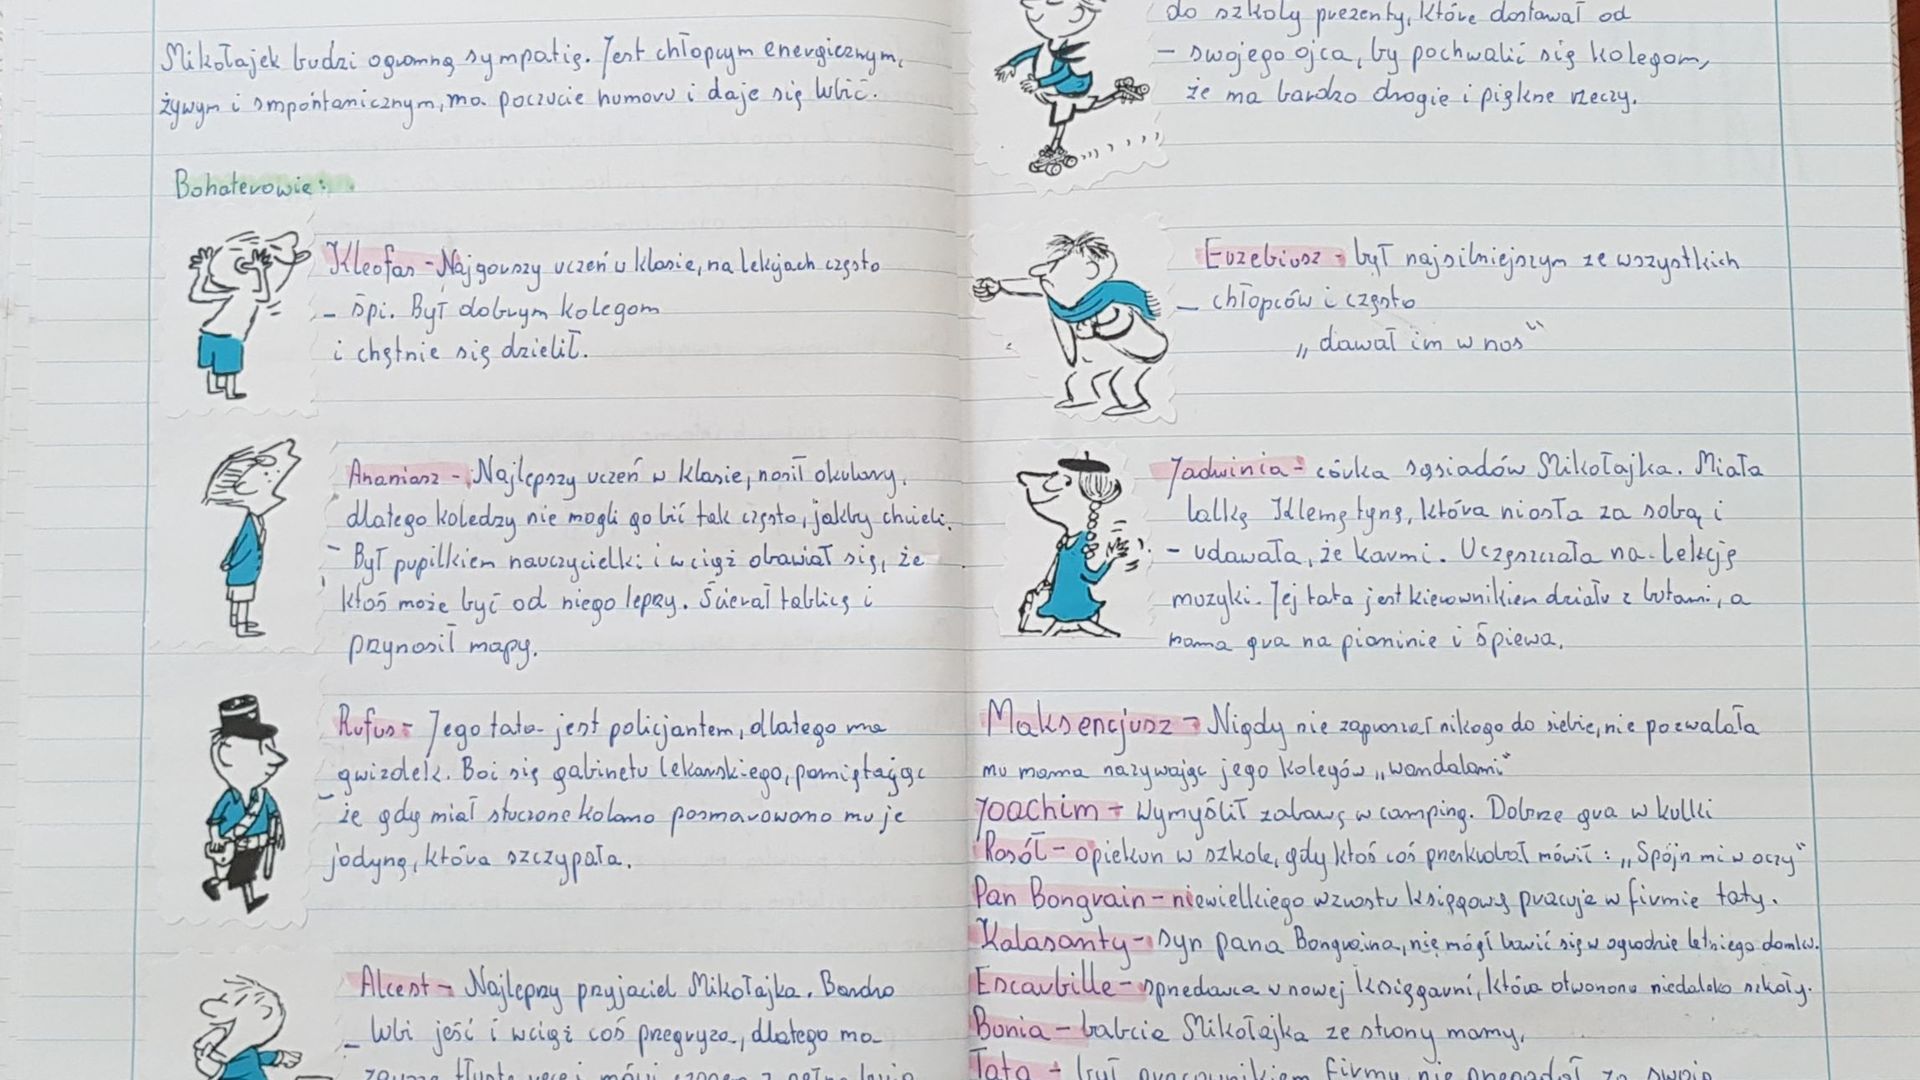 Mikołajek budzi ogromną sympatię. Jest chłopcym energicznym,
żywym i smpontanicznym, ma poczucie humoru i daje się lubić.
Bohaterowie:
Kleofas - Najgorszy uczeń w klasie, na lekcjach często
- śpi. Był dobrym kolegom
i chętnie się dzielił.
Ananiasz - Najlepszy uczeń w klasie, nosił okulary,
dlatego koledzy nie mogli go bić tak często, jakby chcieli.
- Był pupilkiem nauczycielki i wciąż obawiał się, że
ktoś może być od niego lepszy. Ścierał tablicę i
przynosił mapy.
Rufus - Jego tata jest policjantem, dlatego ma
gwizdek. Boi się gabinetu lekarskiego, pamiętając
- że gdy miał stłuczone kolano posmarowano mu je
jodyną, która szczypała.
Alcest - Najlepszy przyjaciel Mikołajka. Bardzo
- lubi jeść i wciąż coś przegryza, dlatego ma
zawsze tłuste ręce i mówi czasem z pełną buzią
do szkoły prezenty, które dostawał od
- swojego ojca, by pochwalić się kolegom,
że ma bardzo drogie i piękne rzeczy.
Euzebiusz - był najsilniejszym ze wszystkich
- chłopców i często
„dawał im w nos"
Jadwinia - córka sąsiadów Mikołajka. Miała
lalkę Klemętynę, która niosła za sobą i
- udawała, że karmi. Uczęszczała na lekcję
muzyki. Jej tata jest kierownikiem działu z butami, a
mama gra na pianinie i śpiewa.
Maksencjusz - Nigdy nie zapraszał nikogo do siebie, nie pozwalała
mu mama nazywając jego kolegów „wandalami"
Joachim - Wymyślił zabawę w camping. Dobrze gra w kulki
Rosół - opiekun w szkole, gdy ktoś coś przeskrobał mówił: „Spójrz mi w oczy"
Pan Bongrain - niewielkiego wzrostu księgowy pracuje w firmie taty.
Kalasanty - syn pana Bongraina, nie mógł bawić się w ogrodzie letniego domku.
Escarbille - sprzedawca w nowej księgarni, którą otworzono niedaleko szkoły.
Bunia - babcia Mikołajka ze strony mamy,
Tata - był pracownikiem firmy nie przepadał za swoją